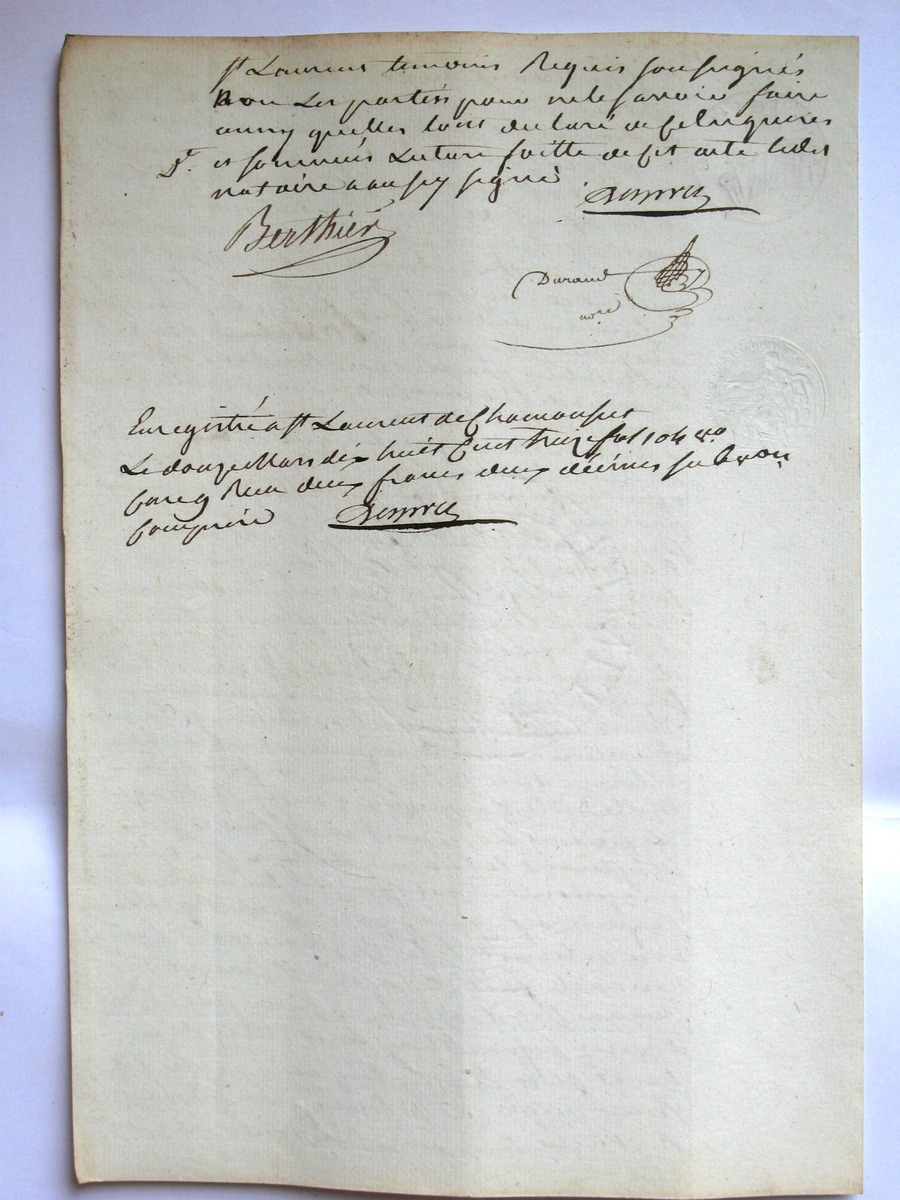 St Laurent temoins Requis soussignés
non Les parties pour ne le savoir faire
ainsy quelles lont declaré de ce Enquises
Dt. et sommées Lecture faitte de cet acte ledit
notaire a aussy signé
Berthier
Durand
nore
Enregistré a St Laurent de Chamousset
Le douze Mars dix huit Cent treize fol 104 Ro
Case 9 Recu deux francs deux décimes subvon
Comprise